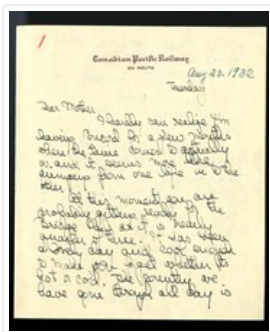 1
Canadian Pacific Railway
EN ROUTE
Aug 23. 1932
Tuesday
Dear Mother
I hardly can realize I'm
leaving for a few months
when the time comes to actually
go and it seems more like
jumping from one into the
other.
At this moment you are
probably getting ready for
bridge they as it is nearly
quarter of three. It has been
a lovely day and cool enough
to make you forget whether it's
hot or cold. The country we
have gone through all day is